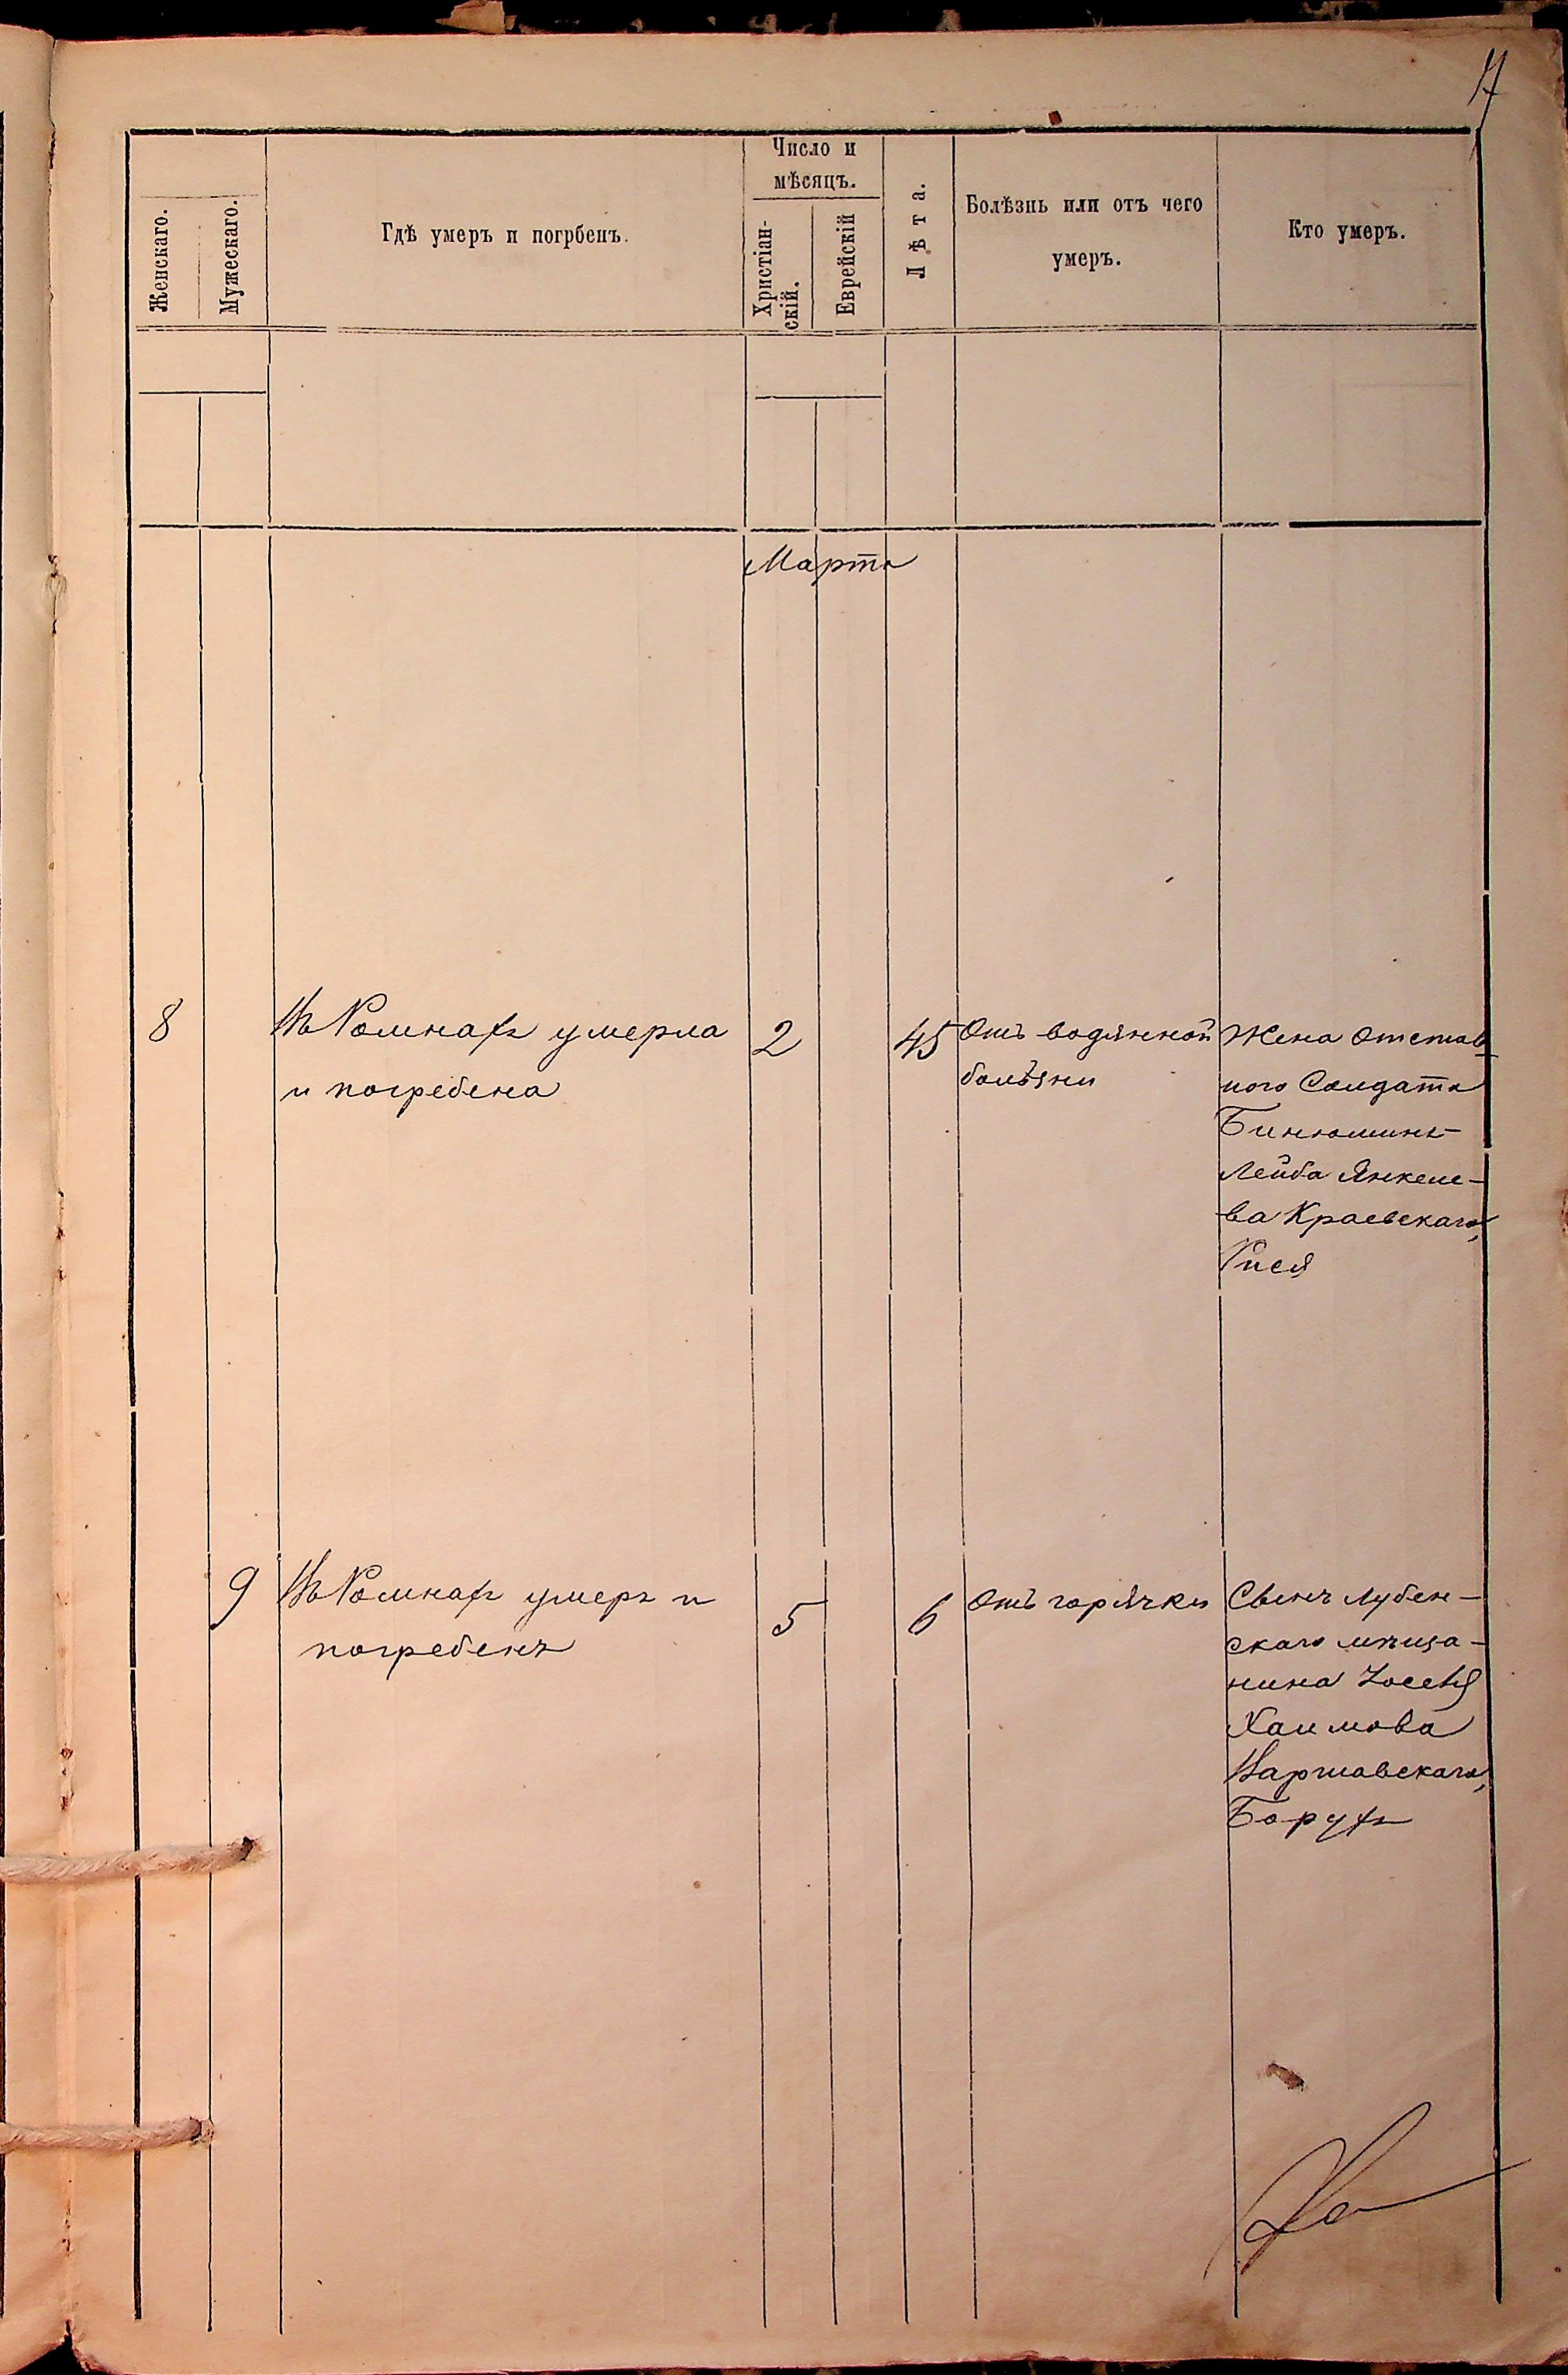 17
Число и
мѣсяцъ.
Женскаго.
Мужескаго.
Гдѣ умеръ и погрбенъ.
Христіан-
скій.
Еврейскій
Лѣта.
Болѣзнь или отъ чего
умеръ.
Кто умеръ.
Марта
8
Въ Ромнахъ умерла
и погребена
2
45
Отъ водянной
болѣзни
Жена Отстав-
ного Солдата
Бинюминъ-
Лейба Янкеле-
ва Краевскаго,
Рися
9
Въ Ромнахъ умеръ и
погребенъ
5
6
Отъ горячки
Сынъ Лубен-
скаго мѣща-
нина Іосея
Хаимова
Варшавскаго,
Борухъ